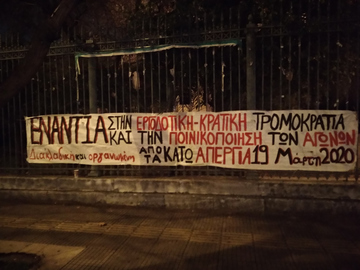 ΕΝΑΝΤΙΑ ΣΤΗΝ ΕΡΓΟΔΟΤΙΚΗ-ΚΡΑΤΙΚΗ ΤΡΟΜΟΚΡΑΤΙΑ
ΚΑΙ ΤΗΝ ΠΟΙΝΙΚΟΠΟΙΗΣΗ ΤΩΝ ΑΓΩΝΩΝ
Διακλαδική και οργανωμένη ΑΠΟ ΤΑ ΚΑΤΩ ΑΠΕΡΓΙΑ 19 Μάρτη 2020